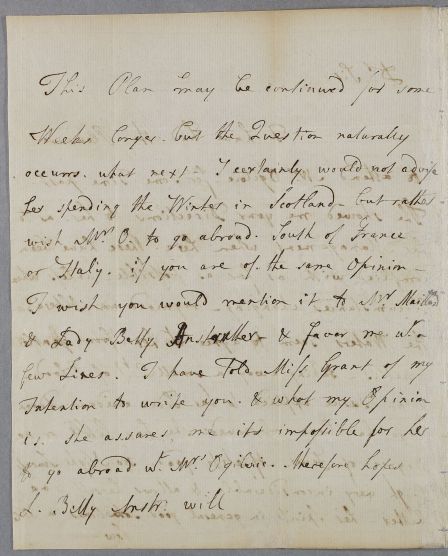 This Plan may be continued for some
Weeks longer. but the Question naturally
occurrs. what next. I certainly would not advise
her spending the Winter in Scotland - but rather
wish Mrs. O. to go abroad. South of France
or Italy. if you are of the same Opinion -
I wish you would mention it to Mr Maitland
& Lady Betty Anstruther - & favor me wt. a
few Lines. I have Told Miss Grant of my
Intention to write you. & what my Opinion
is. she assures me its impossible for her
to go abroad wt. Mrs. Ogilvie. therefore hopes
L. Betty Anstr. will